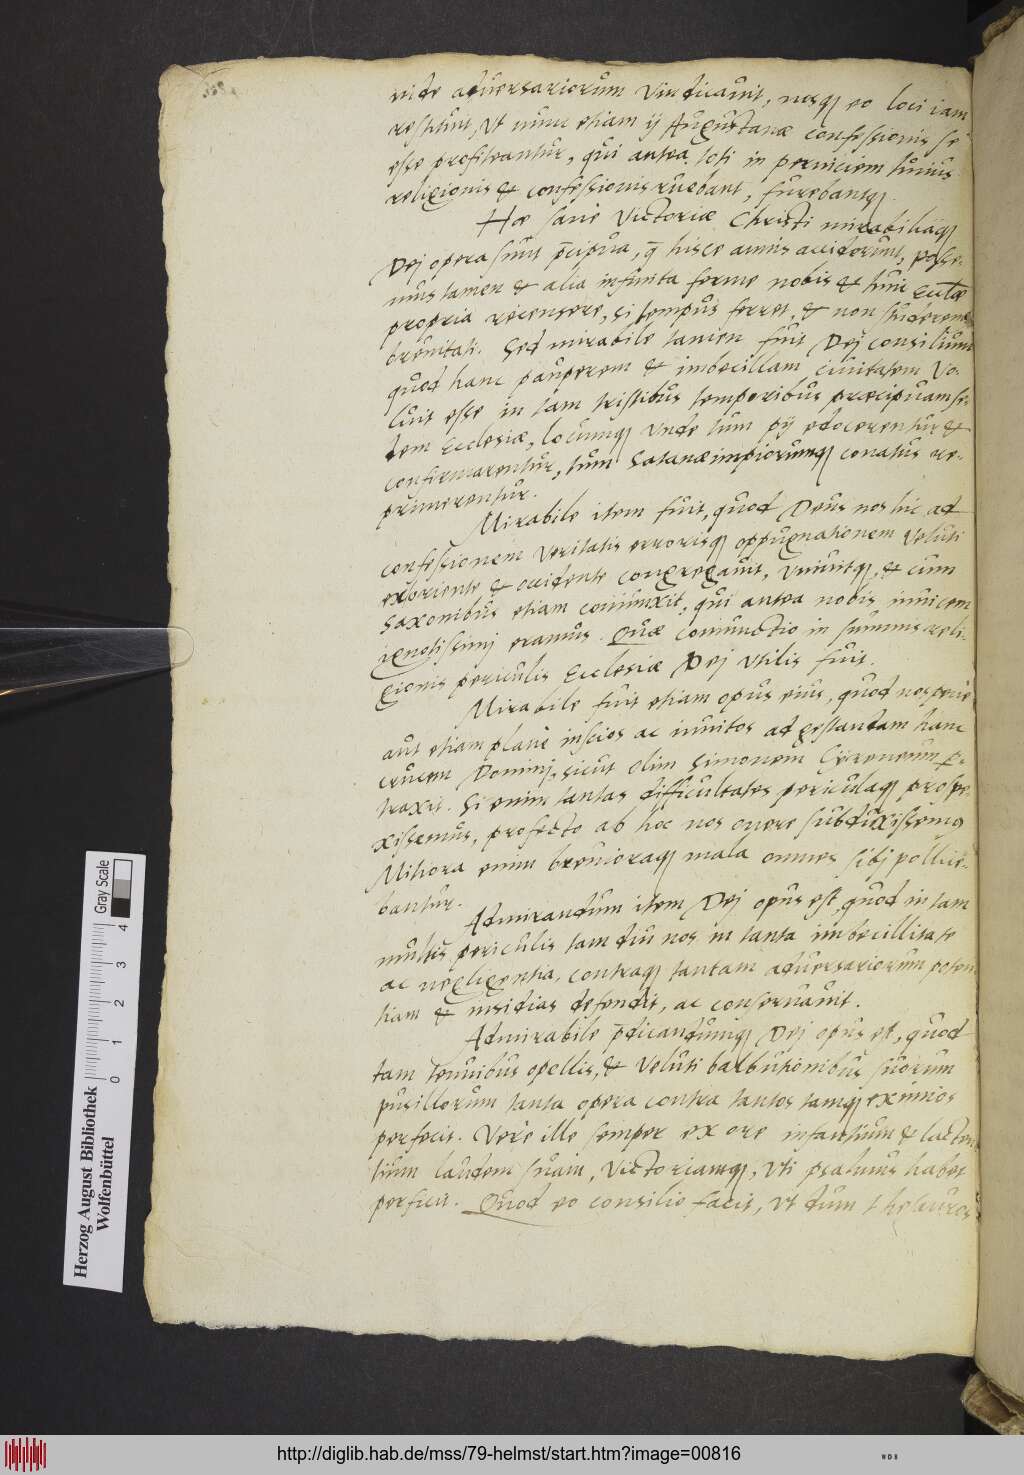 vide adversariorum vindicavit, neq; eo loci iam
restitūt, Ut nunc etiam ij Augustanæ confessionis se
esse profiteantur, qui antea toti in perniciem huius
religionis & confessionis ruebant, furebantq;
Hæ sanè Victoriæ Christi mirabiliaq;
Dej opera sūt p̄cipua, q̄ hisce annis acciderunt, posse-
mus tamen & alia infinita ferme nobis & huic Eccl̄æ
propria recensere, si tempus ferret, & non studerem
brevitati. Sed mirabile tamen fuit Dej consilium
quod hanc pauperem & imbecillam civitatem vo-
luit esse in tam tristibus temporibus præcipuam se-
dem Ecclesiæ, locumq; unde tum pij edocerentur &
confirmarentur, tum Satanæ impiorumq; conatus re-
primerentur.
Mirabile item fuit, quod Deus nos hic ad
confessionem veritatis errorisq; oppugnationem veluti
ex oriente & occidente congregavit, univitq;, & cum
Saxonibus etiam coniunxit, qui antea nobis invicem
ignotissimj eramus. Quæ coniunctio in summis reli-
gionis periculis Ecclesiæ Dej utilis fuit.
Mirabile fuit etiam opus eius, quod nos penè
aut etiam planè inscios ac invitos ad gestandam hanc
crucem Dominj, sicut olim Simonem Cyreneum p̱-
traxit. Si enim tantas difficultates periculaq; prospe-
xissemus, profecto ab hoc nos onere subduxissemq
Mitiora enim brevioraq; mala omnes sibj pollice-
bantur.
Admirandum item Dej opus est, quod in tam
multis periculis tam diu nos in tanta imbecillitate
ac negligentia, contraq; tantam adversariorum poten
tiam & insidias defendit, ac conservavit.
Admirabile p̄dicandumq; Dej opus est, quod
tam tenuibus opellis, & veluti balbutionibus suorum
pusillorum tanta opera contra tantos tamq; eximios
perfecit. Verè ille semper ex ore infantium & lacten
tium laudem suam, victoriamq;, uti psalmus habet
perficit. Quod eo consilio facit, ut dum thesauros
Herzog August Bibliothek
Wolfenbüttel
0 1 2 3 4
Gray Scale
http://diglib.hab.de/mss/79-helmst/start.htm?image=00816
WDB